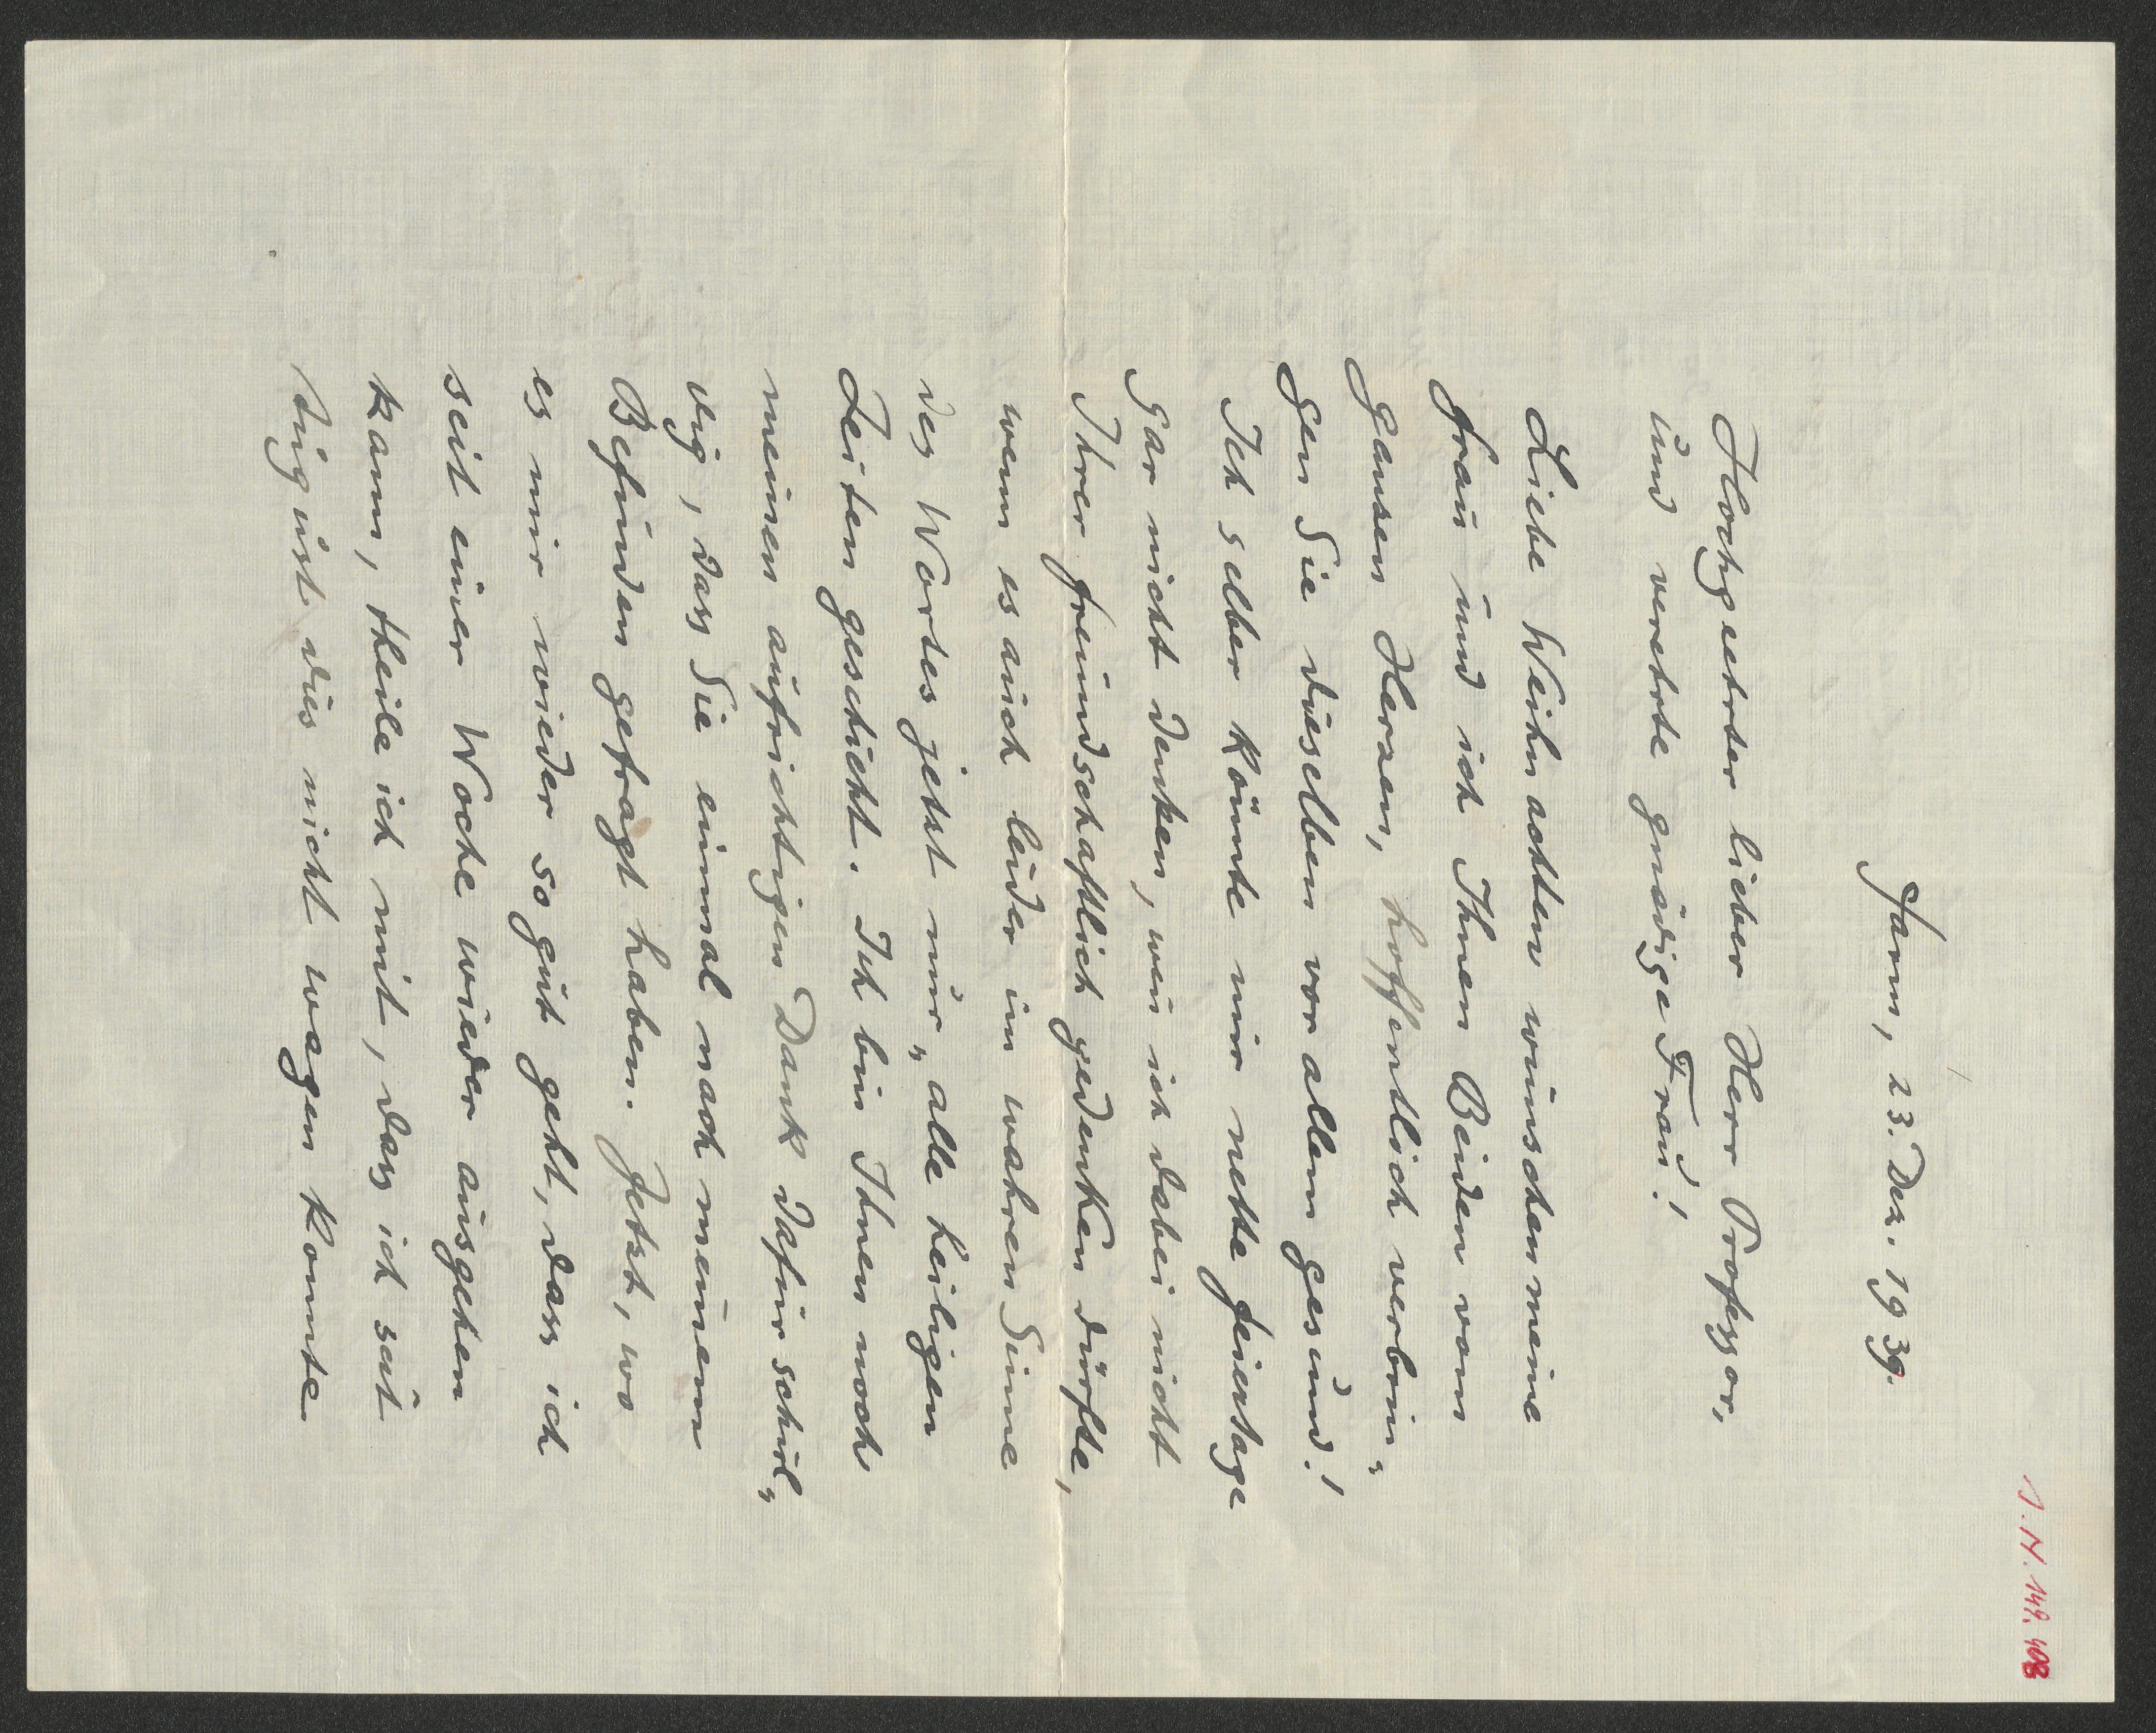 J. N. 149.408
Hann, 23. Dez. 1939.
Hochgeehrter lieber Herr Professor,
und verehrte gnädige Frau!
Liebe Weihnachten wünschen meine
Frau und ich Ihnen Beiden vom
ganzen Herzen, hoffentlich verbrin„
gen Sie dieselben vor allem gesund!
Ich selber könnte mir nette Feiertage
gar nicht denken, wen ich dabei nicht
Ihrer freundschaftlich gedenken dürfte,
wenn es auch leider im wahren Sinne
des Wortes jetzt nur „alle heiligen
Zeiten geschieht. Ich bin Ihnen noch
meinen aufrichtigen Dank dafür schul„
dig, dass Sie einmal nach meinem
Befinden gefragt haben. Jetzt, wo
es mir wieder so gut geht, dass ich
seit einer Woche wieder ausgehen
kann, theile ich mit, dass ich seit
August dies nicht wagen konnte